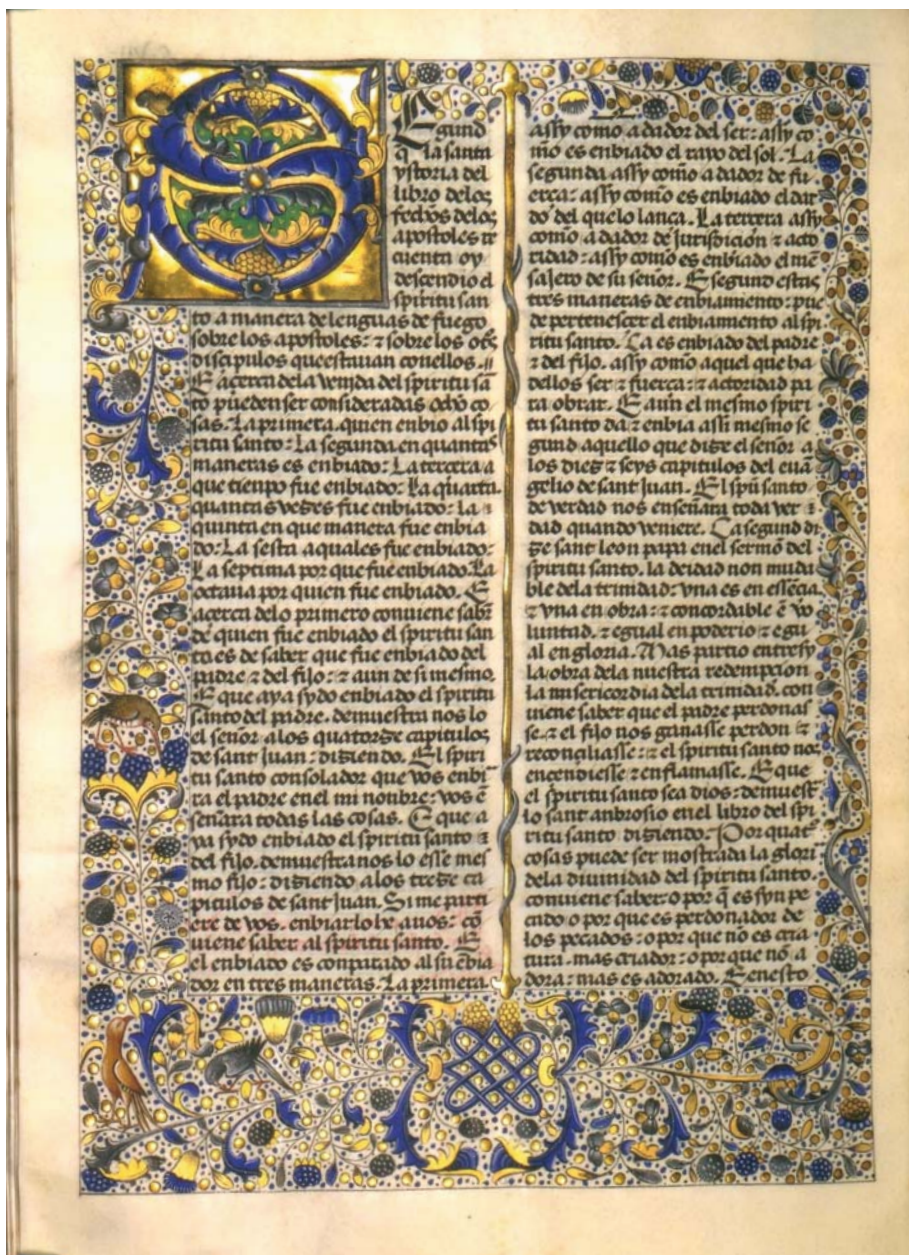 Segund
q̃ la santa
ystoria del
libro delos
fechos delos
apostoles re
cuenta oy
descendio el
spiritu san
to a manera de lenguas de fuego
sobre los apostoles: ⁊ sobre los otͦs
discipulos que estauan conellos.
E acerca dela venida del spiritu sã
to pueden ser consideradas ocho co
sas. La primera. quien enbio al spi
ritu santo: La segunda en quantas
maneras es enbiado: La tercera a
que tienpo fue enbiado: La quarta
quantas vezes fue enbiado: la
quinta en que manera fue enbia
do: La sesta a quales fue enbiado:
La septima por que fue enbiado. La
octaua por quien fue enbiado. E
acerca delo primero conuiene sabr̃
de quien fue enbiado el spiritu san
to es de saber que fue enbiado del
padre ⁊ del fijo: ⁊ aun de si mesmo.
E que aya sydo enbiado el spiritu
santo del padre. demuestra nos lo
el señor alos quatorze capitulos
de sant Juan: diziendo. El spiri
tu santo consolador que vos enbi
ra el padre en el mi nonbre: vos ẽ
señara todas las cosas. E que a
ya sydo enbiado el spiritu santo ⁊
del fijo. demuestra nos lo esse mes
mo fijo: diziendo a los treze ca
pitulos de sant Juan. Si me parti
ere de vos. enbiarlo he a uos: cõ
uiene saber al spiritu santo. E
el enbiado es conparado al su ẽbia
dor en tres maneras. La primera.
assy como a dador del ser: assy co
mo es enbiado el rayo del sol. La
segunda assy como a dador de fu
erça: assy como es enbiado el dar
do del que lo lança. La tercera assy
como a dador de juridición ⁊ acto
ridad: assy como es enbiado el mẽ
sajero de su señor. E segund estas
tres maneras de enbiamiento: pue
de pertenescer el enbiamiento al spi
ritu santo. Ca es enbiado del padre
⁊ del fijo. assy como aquel que ha
dellos ser ⁊ fuerça: ⁊ actoridad pa
ra obrar. E aun el mesmo spiri
tu santo da ⁊ enbia assi mesmo se
gund aquello que dize el señor a
los diez ⁊ seys capitulos del euã
gelio de sant Juan. El spũ santo
de verdad nos enseñara toda ver
dad quando veniere. Ca segund di
ze sant leon papa en el sermõ del
spiritu santo. la deidad non muda
ble dela trinidad: vna es en essẽcia
⁊ vna en obra: ⁊ concordable ẽ vo
luntad. ⁊ egual en poderio ⁊ egu
al en gloria. Mas partio entre sy
la obra dela nuestra redempcion
la misericordia dela trinidad. con
uiene saber que el padre perdonas
se. ⁊ el fijo nos ganasse perdon ⁊
reconçiliasse: ⁊ el spiritu santo nos
encendiesse ⁊ enflamasse. E que
el spiritu santo sea dios: demuest
lo sant anbrosio en el libro del spi
ritu santo diziendo. Por quat
cosas puede ser mostrada la glori
dela diuinidad del spiritu santo.
conuiene saber: o por q̃ es syn pe
cado o por que es perdonador de
los pecados: o por que no es cria
tura. mas criador: o por que no a
dora: mas es adorado. E en esto